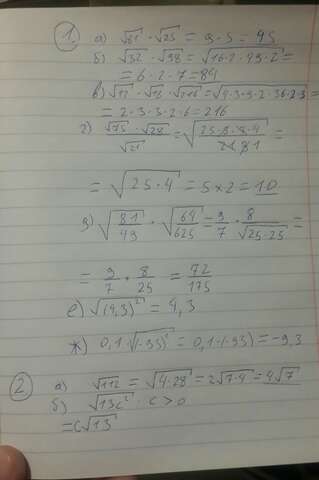 1. а) √81 · √25 = 9 · 5 = 45
б) √32 · √98 = √16·2·49·2 =
= 6 · 2 · 7 = 84
в) √12 · √18 · √216 = √4·3·9·2·36·2·3 =
= 2 · 3 · 3 · 2 · 6 = 216
= √25·4 = 5 × 2 = 10
д) √81/49 · √64/625 = 9/7 · 8/√25·25 =
= 9/7 · 8/25 = 72/175
е) √(4,3)² = 4,3
ж) 0,1 · √(-93)² = 0,1 · (-93) = -9,3
2. а) √112 = √4·28 = 2√7·4 = 4√7
б) √13c² · c > 0
= c√13